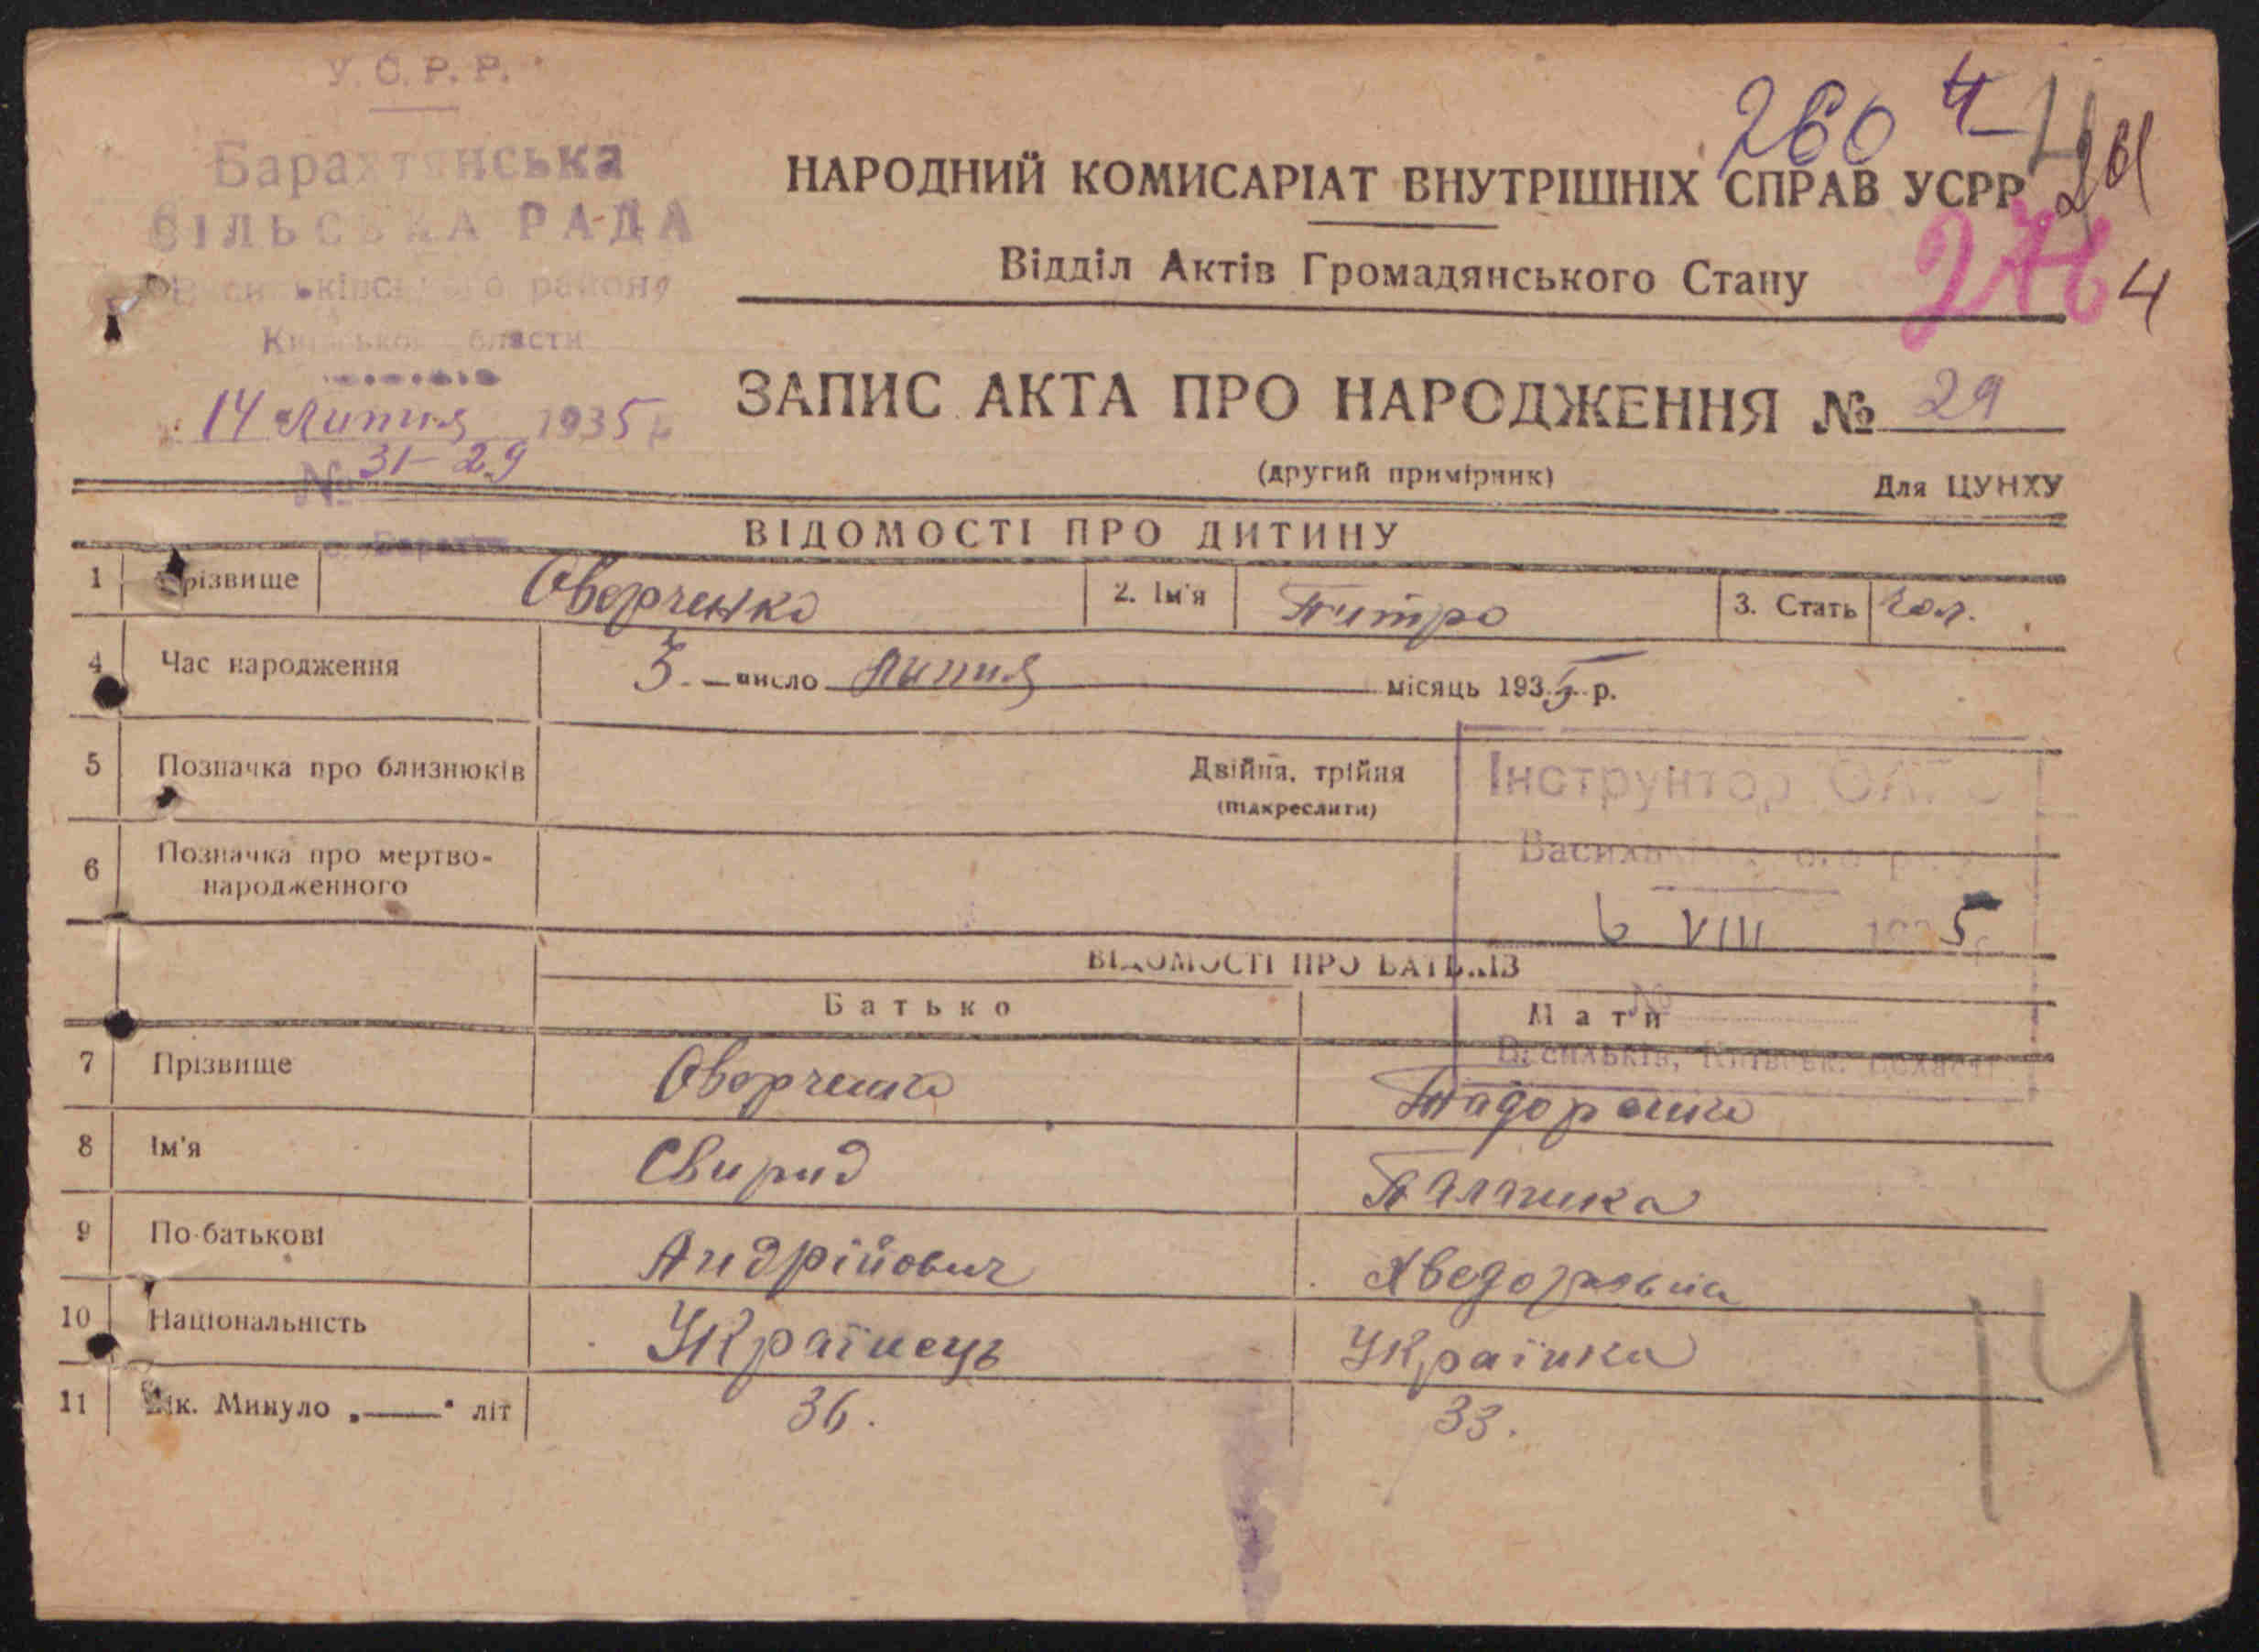 У.С.Р.Р.
Барахтянська
СІЛЬСЬКА РАДА
Васильківського району
Київської області
14 Липня 1935 р.
№ 31-29
с. Барахти
260 4 4
261
271 4
НАРОДНИЙ КОМИСАРІАТ ВНУТРІШНІХ СПРАВ УСРР
Відділ Актів Громадянського Стану
ЗАПИС АКТА ПРО НАРОДЖЕННЯ № 29
(другий примірник) Для ЦУНХУ
ВІДОМОСТІ ПРО ДИТИНУ
1 Прізвище Оверченко 2. Ім'я Питро 3. Стать Чол.
4 Час народження 3 число липня місяць 1935 р.
5 Позначка про близнюків Двійня, трійня
(підкреслити)
Інструктор ОАГС
Васильківського району
6 Позначка про мертво-
народженного
6 VIII 1935 р.
ВІДОМОСТІ ПРО БАТЬКІВ
Батько Мати
№
Васильків, Київськ. області
7 Прізвище Оверченко
8 Ім'я Свирид Палашка
9 По-батькові Андрійович Хведоровна
10 Національність Українець Українка
11 Вік. Минуло „——" літ 36. 33.
14